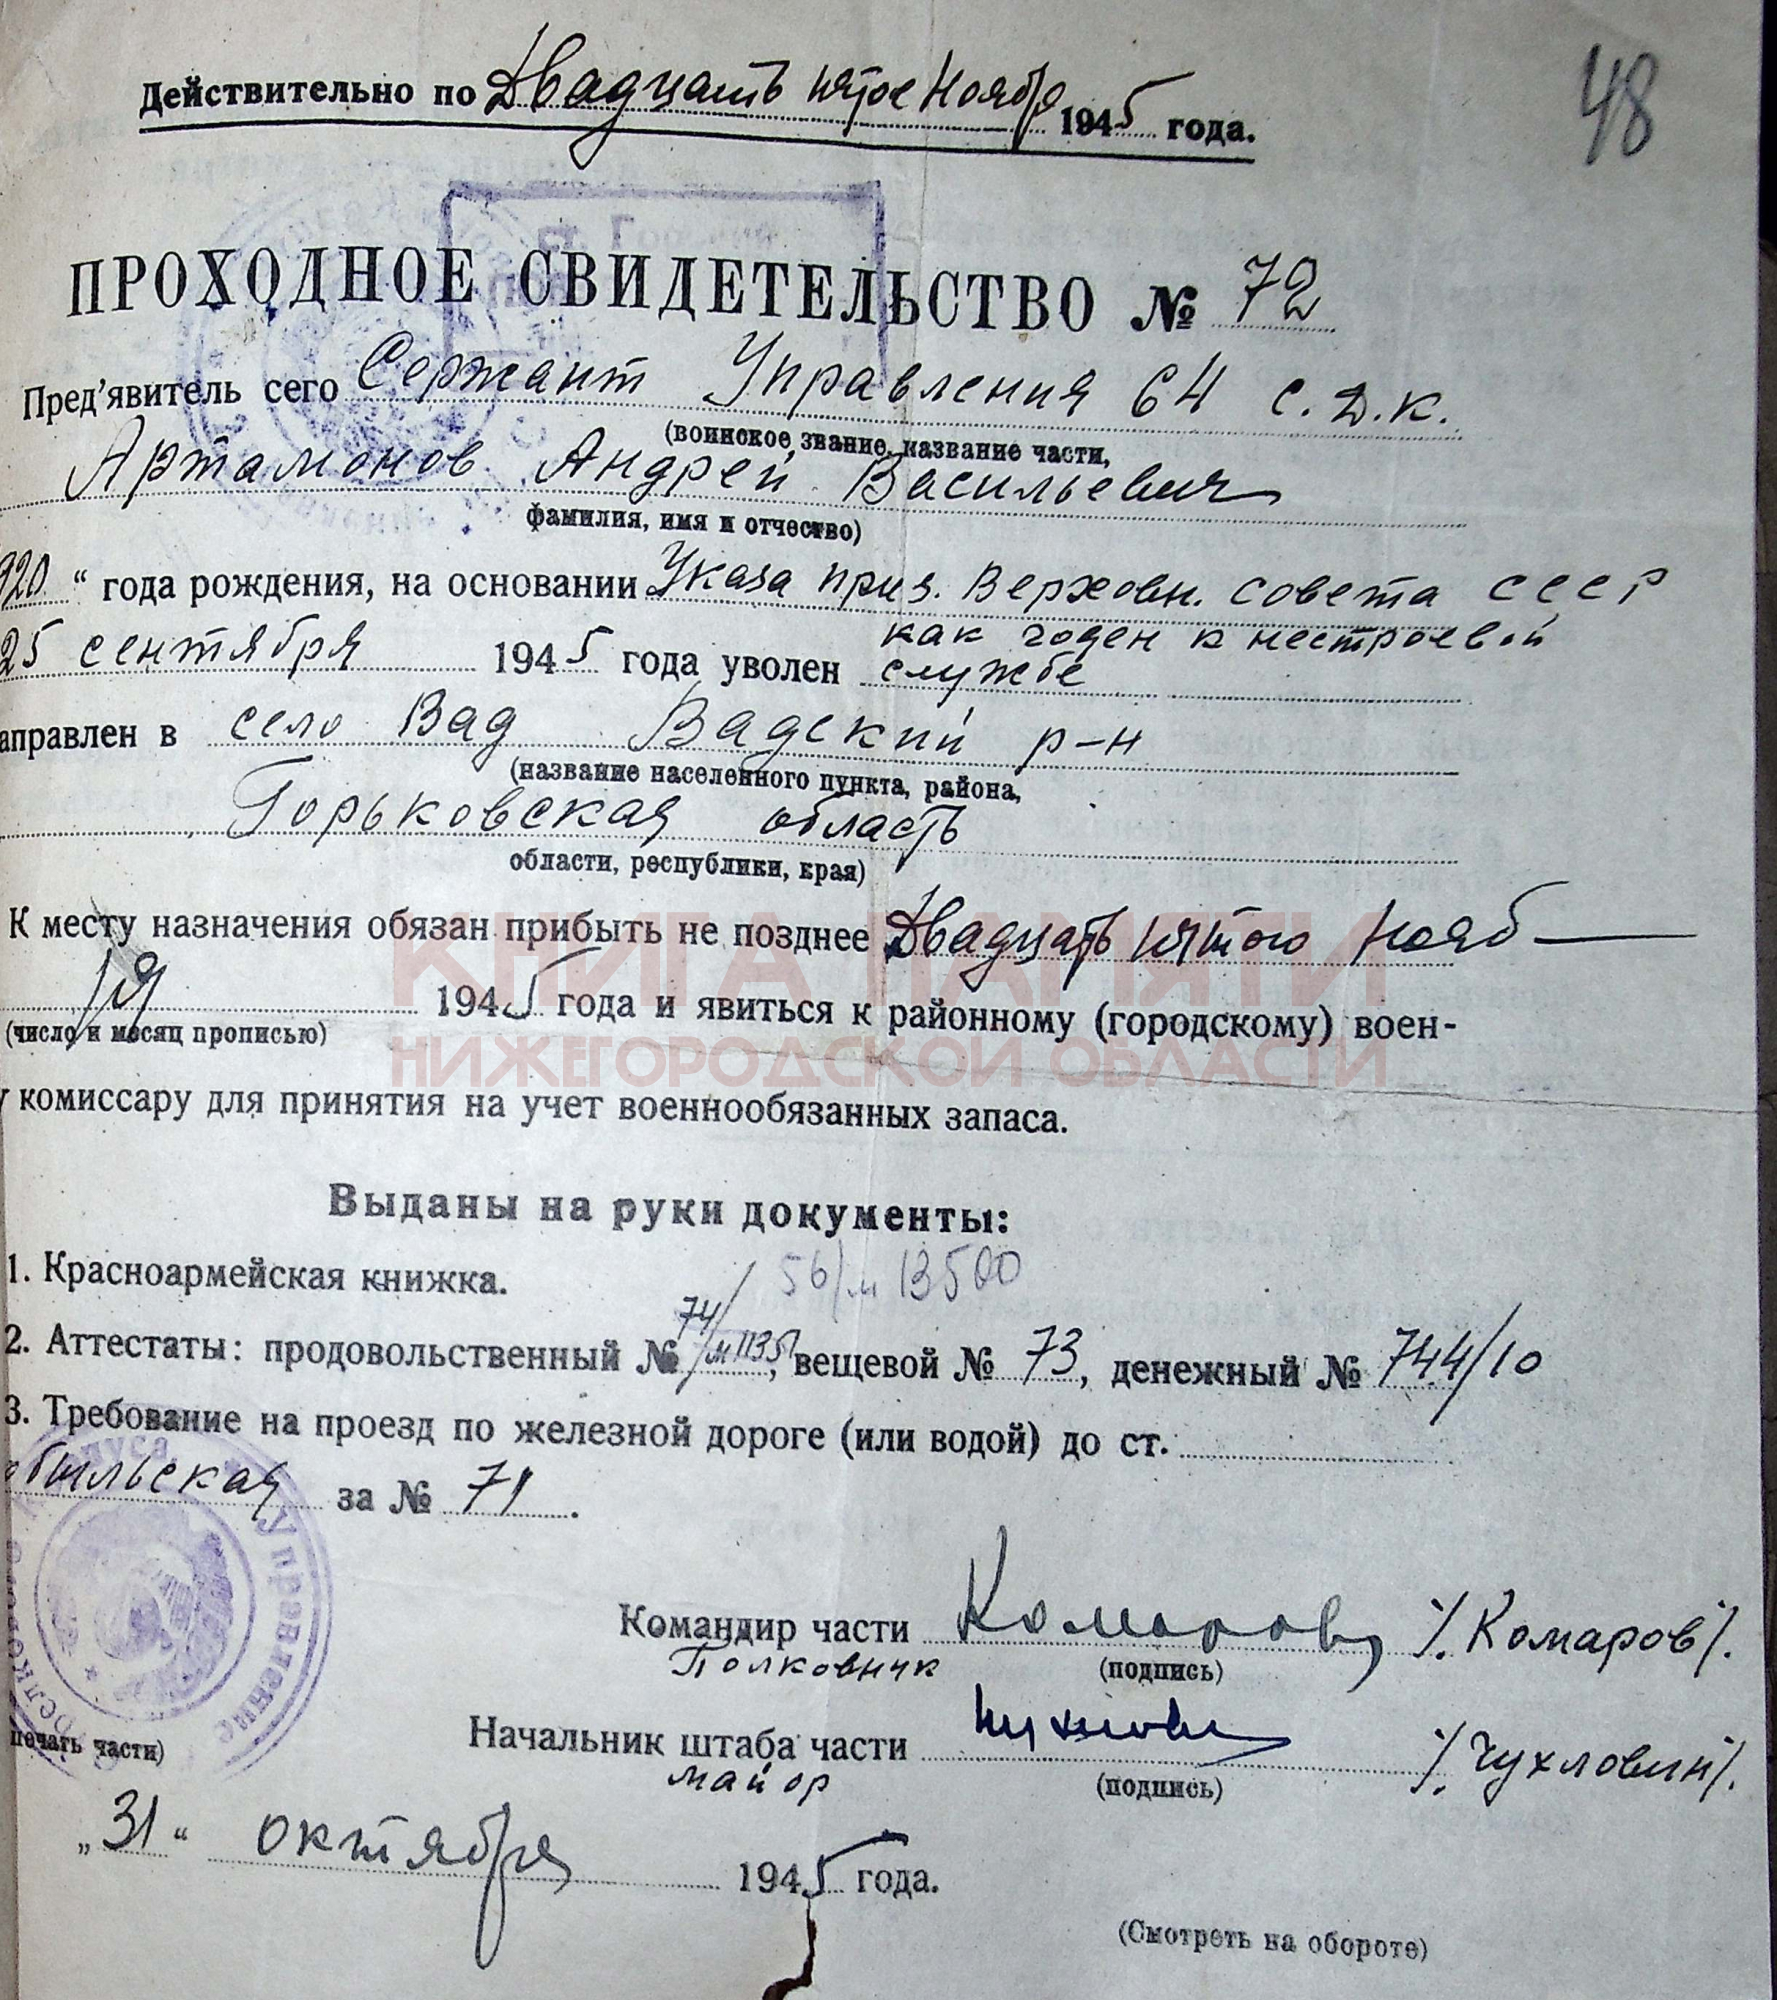 48
Действительно по Двадцать пятое Ноября 1945 года.
ПРОХОДНОЕ СВИДЕТЕЛЬСТВО № 72
Пред'явитель сего Сержант Управления 64 с.д.к.
(воинское звание, название части,
Артамонов Андрей Васильевич
фамилия, имя и отчество)
920 “ года рождения, на основании Указа през. Верховн. Совета СССР
25 сентября 1945 года уволен как годен к нестроевой
службе
аправлен в село Вад Вадский р-н
(название населенного пункта, района,
Горьковская область
области, республики, края)
К месту назначения обязан прибыть не позднее Двадцать пятого Нояб
ря 1945 года и явиться к районному (городскому) воен-
(число и месяц прописью)
КНИГА ПАМЯТИ
НИЖЕГОРОДСКОЙ ОБЛАСТИ
у комиссару для принятия на учет военнообязанных запаса.
Выданы на руки документы:
1. Красноармейская книжка.
2. Аттестаты: продовольственный № 74/ вещевой № 73, денежный № 744/10
3. Требование на проезд по железной дороге (или водой) до ст.
обыльская за № 71.
Управление
Командир части Комаров /Комаров/.
Полковник (подпись)
Начальник штаба части /Чухловин/.
майор (подпись)
печать части)
„31“ октября 1945 года.
(Смотреть на обороте)